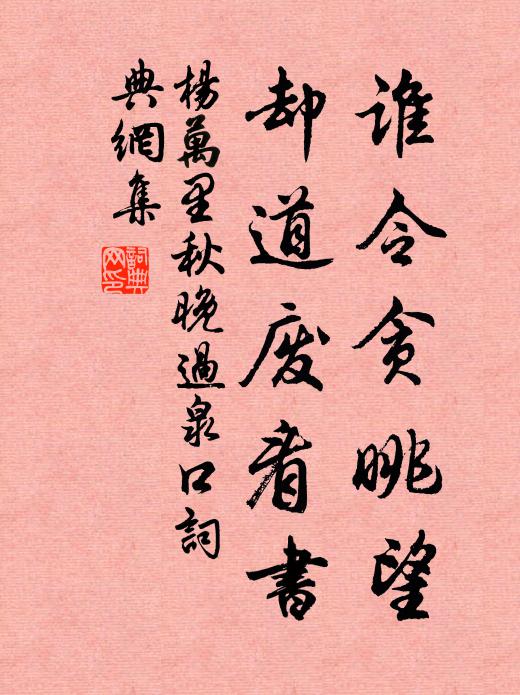 誰令貪眺望
却道廢看書
楊萬里秋晚過泉口詞
典網集
詞典
网印